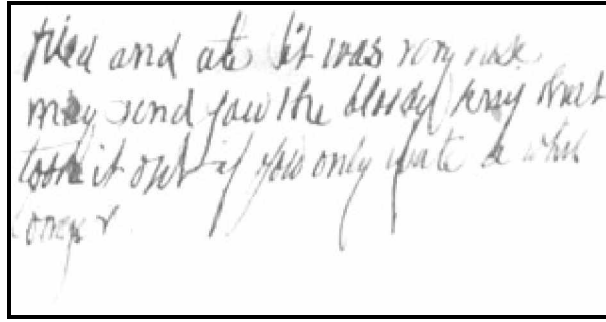 fried and ate it was very nise
may send you the bloody knif that
took it out if you only wate a whil
longer